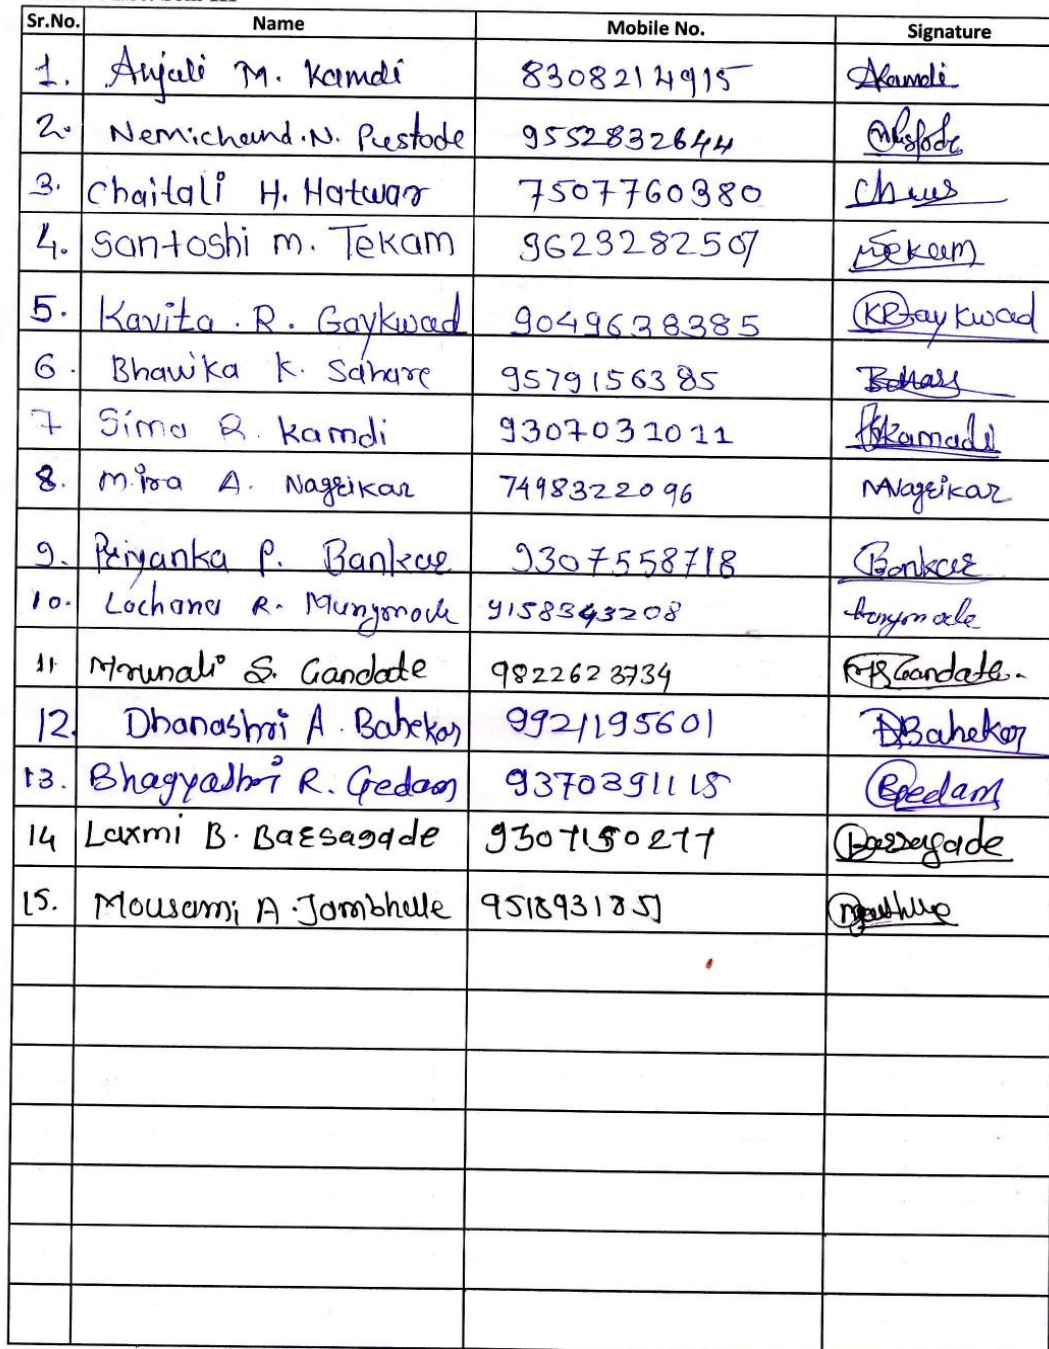 Sr.No. Name Mobile No. Signature
1. Anjali M. Kamdi 8308214915 AKamdi
2. Nemichand.N. Pustode 9552832644
3. Chaitali H. Hatwar 7507760380
4. Santoshi m. Tekam 9623282507
5. Kavita . R. Gaykwad 9049638385 KRGaykwad
6. Bhawika K. Sahare 9579156385
7 Sima R. Kamdi 9307031011 Kamadi
8. Mira A. Nagrikar 7498322096 MNagrikar
9. Priyanka P. Bankar 9307558718 Bankar
10. Lochana R. Mungmode 9158343208
11 Mrunali S. Gandate 9822623734 Gandate.
12. Dhanashri A. Bahekar 9921195601 DBahekar
13. Bhagyashri R. Gedam 9370391115 Gedam
14 Laxmi B. Barsagade 9307150277 Barsagade
15. Mousami A. Jambhule 9518931851